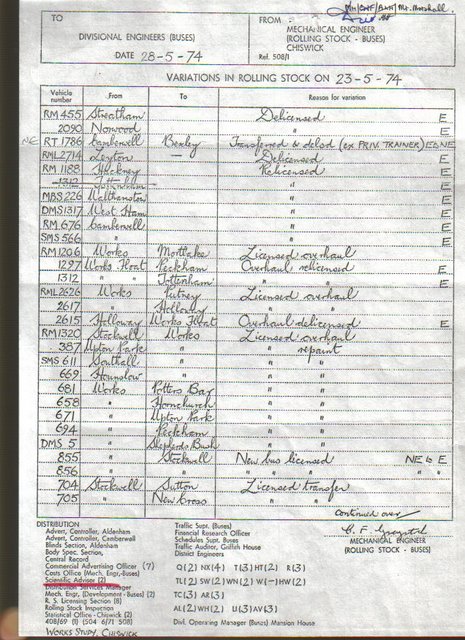 MH/CHF/BHN Mr. Marshall
TO
DIVISIONAL ENGINEERS (BUSES)
DATE 28-5-74
FROM
MECHANICAL ENGINEER
(ROLLING STOCK - BUSES)
CHISWICK
Ref. 508/1
VARIATIONS IN ROLLING STOCK ON 23-5-74
Vehicle number From To Reason for variation
RM 455 Streatham Delicensed E
2090 Norwood " E
NE RT 1786 Camberwell Bexley Transferred & delsd (ex PRIV. TRAINER) E&NE
RML 2714 Leyton — Delicensed E
RM 1188 Hackney Relicensed E
1312 " E
MBS 226 Walthamstow " E
DMS 1317 West Ham " E
RM 676 Camberwell " E
SMS 566 " " E
RM 1206 Works Mortlake Licensed overhaul
1297 Works Float Peckham Overhaul relicensed E
1312 " " Tottenham " " E
RML 2626 Works Putney Licensed overhaul
2617 " Holloway " "
2615 Holloway Works Float Overhaul delicensed E
RM 1320 Stockwell Works Licensed overhaul
387 Upton Park " " repaint
SMS 611 Southall " " "
669 Hounslow " " "
681 Works Potters Bar " "
658 " Hornchurch " "
671 " Upton Park " "
694 " Peckham " "
DMS 5 " Shepherds Bush " "
855 Stockwell New bus licensed NE to E
856 " " " " " "
704 Stockwell Sutton Licensed transfer
705 " New Cross " "
Continued over
MECHANICAL ENGINEER
(ROLLING STOCK - BUSES)
DISTRIBUTION
Advert. Controller, Aldenham
Advert. Controller, Camberwell
Blinds Section, Aldenham
Body Spec. Section,
Central Record
Commercial Advertising Officer (7)
Costs Office (Mech. Engr.-Buses)
Scientific Adviser (2)
Distribution Services Manager
Mech. Engr. (Development - Buses) (2)
R. S. Licensing Section (8)
Rolling Stock Inspection
Statistical Office - Chiswick (2)
408/69 (1) (504 6/71 508)
WORKS STUDY, CHISWICK
Traffic Supt. (Buses)
Financial Research Officer
Schedules Supt. Buses
Traffic Auditor, Griffith House
District Engineers
Q(2) NX(4) T(3) HT(2) R(3)
TL(2) SW(2) WN(2) W(-) HW(2)
TC(3) AR(3)
AL(2) WH(2) U(3) AV(3)
Divl. Operating Manager (Buses) Mansion House